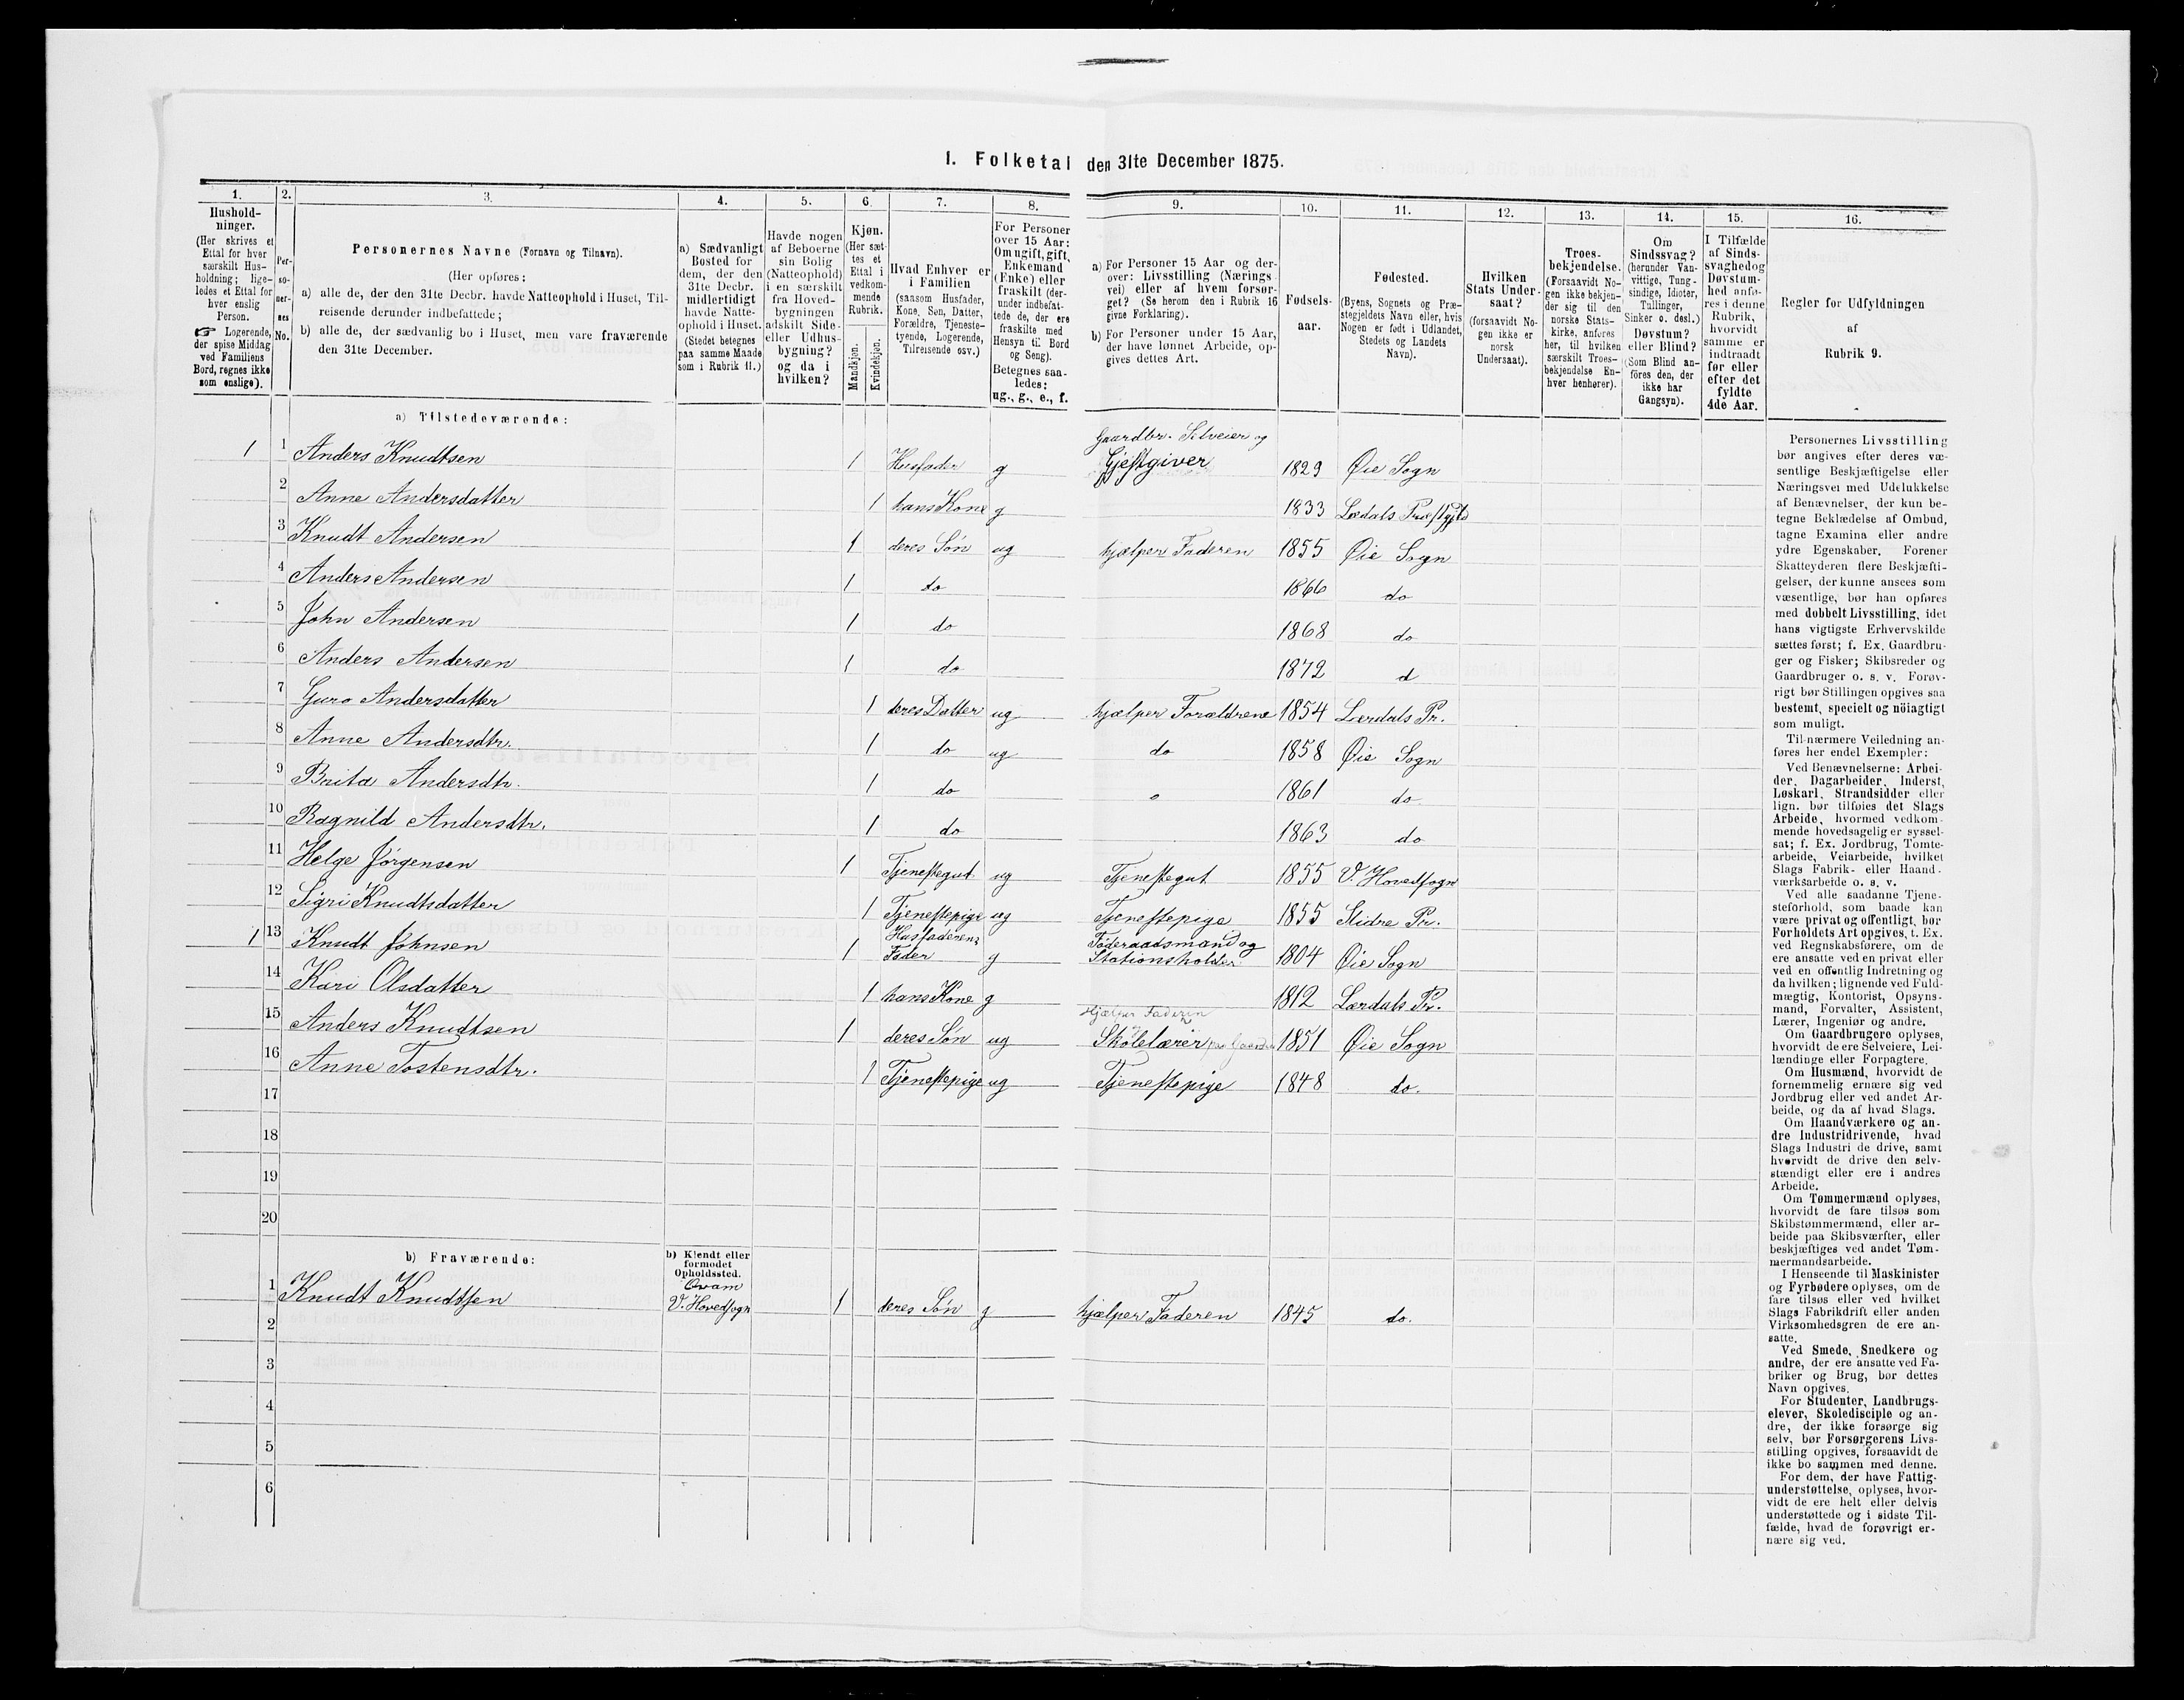 1. Folketal den 31te December 1875.
1. 2. 3. 4. 5. 6. 7. 8. 9. 10. 11. 12. 13. 14. 15. 16.
Hushold-
ninger.
(Her skrives et
Ettal for hver
særskilt Hus-
holdning; lige-
ledes et Ettal for
hver enslig
Person.
☞ Logerende,
der spise Middag
ved Familiens
Bord, regnes ikke
som enslige).
Per-
so-
ner-
nes
No.
Personernes Navne (Fornavn og Tilnavn).
(Her opføres:
a) alle de, der den 31te Decbr. havde Natteophold i Huset, Til-
reisende derunder indbefattede;
b) alle de, der sædvanlig bo i Huset, men vare fraværende
den 31te December.
a) Sædvanligt
Bosted for
dem, der den
31te Decbr.
midlertidigt
havde Natte-
ophold i Huset.
(Stedet betegnes
paa samme Maade
som i Rubrik 11.)
Havde nogen
af Beboerne
sin Bolig
(Natteophold)
i en særskilt
fra Hoved-
bygningen
adskilt Side-
eller Udhus-
bygning?
og da i
hvilken?
Kjøn.
(Her sæt-
tes et
Ettal i
vedkom-
mende
Rubrik.
Mandkjøn.
Kvindekjøn.
Hvad Enhver er
i Familien
(saasom Husfader,
Kone, Søn, Datter,
Forældre, Tjeneste-
tyende, Logerende,
Tilreisende osv.)
For Personer
over 15 Aar:
Om ugift, gift,
Enkemand
(Enke) eller
fraskilt (der-
under indbefat-
tede de, der ere
fraskilte med
Hensyn til Bord
og Seng).
Betegnes saa-
ledes:
ug., g., e., f.
a) For Personer 15 Aar og der-
over: Livsstilling (Nærings-
vei) eller af hvem forsør-
get? (Se herom den i Rubrik 16
givne Forklaring).
b) For Personer under 15 Aar,
der have lønnet Arbeide, op-
gives dettes Art.
Fødsels-
aar.
Fødested.
(Byens, Sognets og Præ-
stegjeldets Navn eller, hvis
Nogen er født i Udlandet,
Stedets og Landets
Navn).
Hvilken
Stats Under-
saat?
(forsaavidt No-
gen ikke er
norsk
Undersaat).
Troes-
bekjendelse.
(Forsaavidt No-
gen ikke bekjen-
der sig til den
norske Stats-
kirke, anføres
her, til hvilken
særskilt Troes-
bekjendelse En-
hver henhører).
Om
Sindssvag?
(herunder Van-
vittige, Tung-
sindige, Idioter,
Tullinger,
Sinker o. desl.)
Døvstum?
eller Blind?
(Som Blind an-
føres den, der
ikke har
Gangsyn).
I Tilfælde
af Sinds-
svaghed og
Døvstum-
hed anfø-
res i denne
Rubrik,
hvorvidt
samme er
indtraadt
før eller
efter det
fyldte
4de Aar.
Regler for Udfyldningen
af
Rubrik 9.
a) Tilstedeværende:
Gaardbr. Selveier og
1 1 Anders Knudtsen 1 Husfader g Gjestgiver 1829 Øie Sogn
2 Anne Andersdatter 1 hans Kone g 1833 Lædals Præstgjld
3 Knudt Andersen 1 deres Søn ug hjælper Faderen 1855 Øie Sogn
4 Anders Andersen 1 do 1866 do
5 John Andersen 1 do 1868 do
6 Anders Andersen 1 do 1872 d
7 Guro Andersdatter 1 deres Datter ug hjælper Forældrene 1854 Lærdals Pr.
8 Anne Andersdtr. 1 do ug do 1858 Øie Sogn
9 Brita Andersdtr. 1 do 1861 do
10 Ragnild Andersdtr. 1 do 1863 do
11 Helge Jørgensen 1 Tjenestegut ug Tjenestegut 1855 V. Hovedsogn
12 Sigri Knudtsdatter 1 Tjenestepige ug Tjenestepige 1855 Slidre Pr.
Husfaderens Føderaadsmand og
1 13 Knudt Johnsen 1 Fader g Stationsholder 1804 Øie Sogn
14 Kari Olsdatter 1 hans Kone g 1812 Lærdals Pr.
hjælper Faderen
15 Anders Knudtsen 1 deres Søn ug Skolelærer paa Gaarden 1851 Øie Sogn
16 Anne Tostensdtr. 1 Tjenestepige ug Tjenestepige 1848 do.
17
18
19
20
b) Fraværende:
b) Kjendt eller
formodet
Opholdssted.
Qvam
1 Knudt Knudtsen V. Hovedsogn 1 deres Søn g hjælper Faderen 1845 do.
2
3
4
5
6
Personernes Livsstilling
bør angives efter deres væ-
sentlige Beskjæftigelse eller
Næringsvei med Udelukkelse
af Benævnelser, der kun be-
tegne Beklædelse af Ombud,
tagne Examina eller andre
ydre Egenskaber. Forener
Skatteyderen flere Beskjæfti-
gelser, der kunne ansees som
væsentlige, bør han opføres
med dobbelt Livsstilling, idet
hans vigtigste Erhvervskilde
sættes først; f. Ex. Gaardbru-
ger og Fisker; Skibsreder og
Gaardbruger o. s. v. Forøv-
rigt bør Stillingen opgives saa
bestemt, specielt og nöiagtigt
som muligt.
Til nærmere Veiledning an-
føres her endel Exempler:
Ved Benævnelserne: Arbei-
der, Dagarbeider, Inderst,
Løskarl, Strandsidder eller
lign. bør tilføies det Slags
Arbeide, hvormed vedkom-
mende hovedsagelig er syssel-
sat; f. Ex. Jordbrug, Tomte-
arbeide, Veiarbeide, hvilket
Slags Fabrik- eller Haand-
værksarbeide o. s. v.
Ved alle saadanne Tjene-
steforhold, som baade kan
være privat og offentligt, bør
Forholdets Art opgives, t. Ex.
ved Regnskabsførere, om de
ere ansatte ved en privat eller
ved en offentlig Indretning og
da hvilken; lignende ved Fuld-
mægtig, Kontorist, Opsyns-
mand, Forvalter, Assistent,
Lærer, Ingeniør og andre.
Om Gaardbrugere oplyses,
hvorvidt de ere Selveiere, Lei-
lændinge eller Forpagtere.
Om Husmænd, hvorvidt de
fornemmelig ernære sig ved
Jordbrug eller ved andet Ar-
beide, og da af hvad Slags.
Om Haandværkere og an-
dre Industridrivende, hvad
Slags Industri de drive, samt
hvorvidt de drive den selv-
stændigt eller ere i andres
Arbeide.
Om Tømmermænd oplyses,
hvorvidt de fare tilsøs som
Skibstømmermænd, eller ar-
beide paa Skibsværfter, eller
beskjæftiges ved andet Tøm-
mermandsarbeide.
I Henseende til Maskinister
og Fyrbødere oplyses, om de
fare tilsøs eller ved hvilket
Slags Fabrikdrift eller anden
Virksomhedsgren de ere an-
satte.
Ved Smede, Snedkere og
andre, der ere ansatte ved Fa-
briker og Brug, bør dettes
Navn opgives.
For Studenter, Landbrugs-
elever, Skoledisciple og an-
dre, der ikke forsørge sig
selv, bør Forsørgerens Livs-
stilling opgives, forsaavidt de
ikke bo sammen med denne.
For dem, der have Fattig-
understøttelse, oplyses, hvor-
vidt de ere helt eller delvis
understøttede og i sidste Til-
fælde, hvad de forøvrigt er-
nære sig ved.